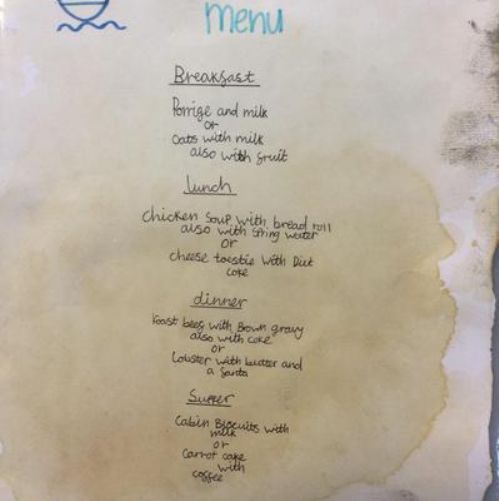 Menu
Breakfast
Porrige and milk
or
Oats with milk
also with fruit
Lunch
chicken soup with bread roll
also with spring water
or
cheese toastie with Diet
coke
dinner
roast beef with Brown gravy
also with coke
or
Lobster with butter and
a fanta
Supper
Cabin Biscuits with
milk
or
Carrot cake
with
coffee